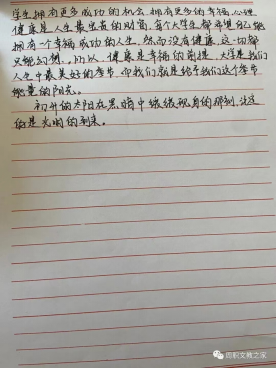 学生拥有更多成功的机会，拥有更多的幸福，心理
健康是人生最宝贵的财富，每个大学生都希望自己能
拥有一个幸福成功的人生，然而没有健康，这一切都
只能幻想，所以，健康是幸福的前提，大学是我们
人生中最美好的季节，而我们就是给予我们这个季节
能量的阳光。
初升的太阳在黑暗中缓缓现身的那刻，注定
的是光明的到来。
周职文教之家